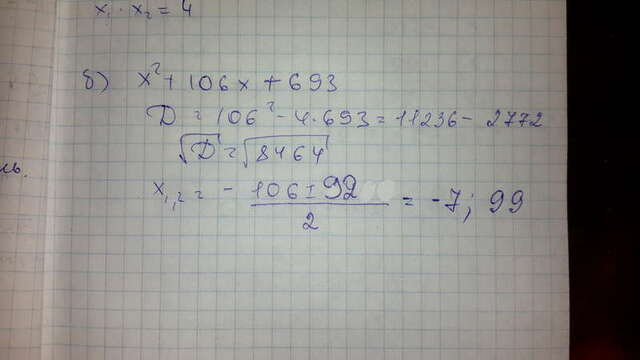 x₁ · x₂ = 4
б) x² + 106x + 693
D = 106² - 4·693 = 11236 - 2772
√D = √8464
x₁,₂ = - 106 ± 92 / 2 = -7; 99
ль.